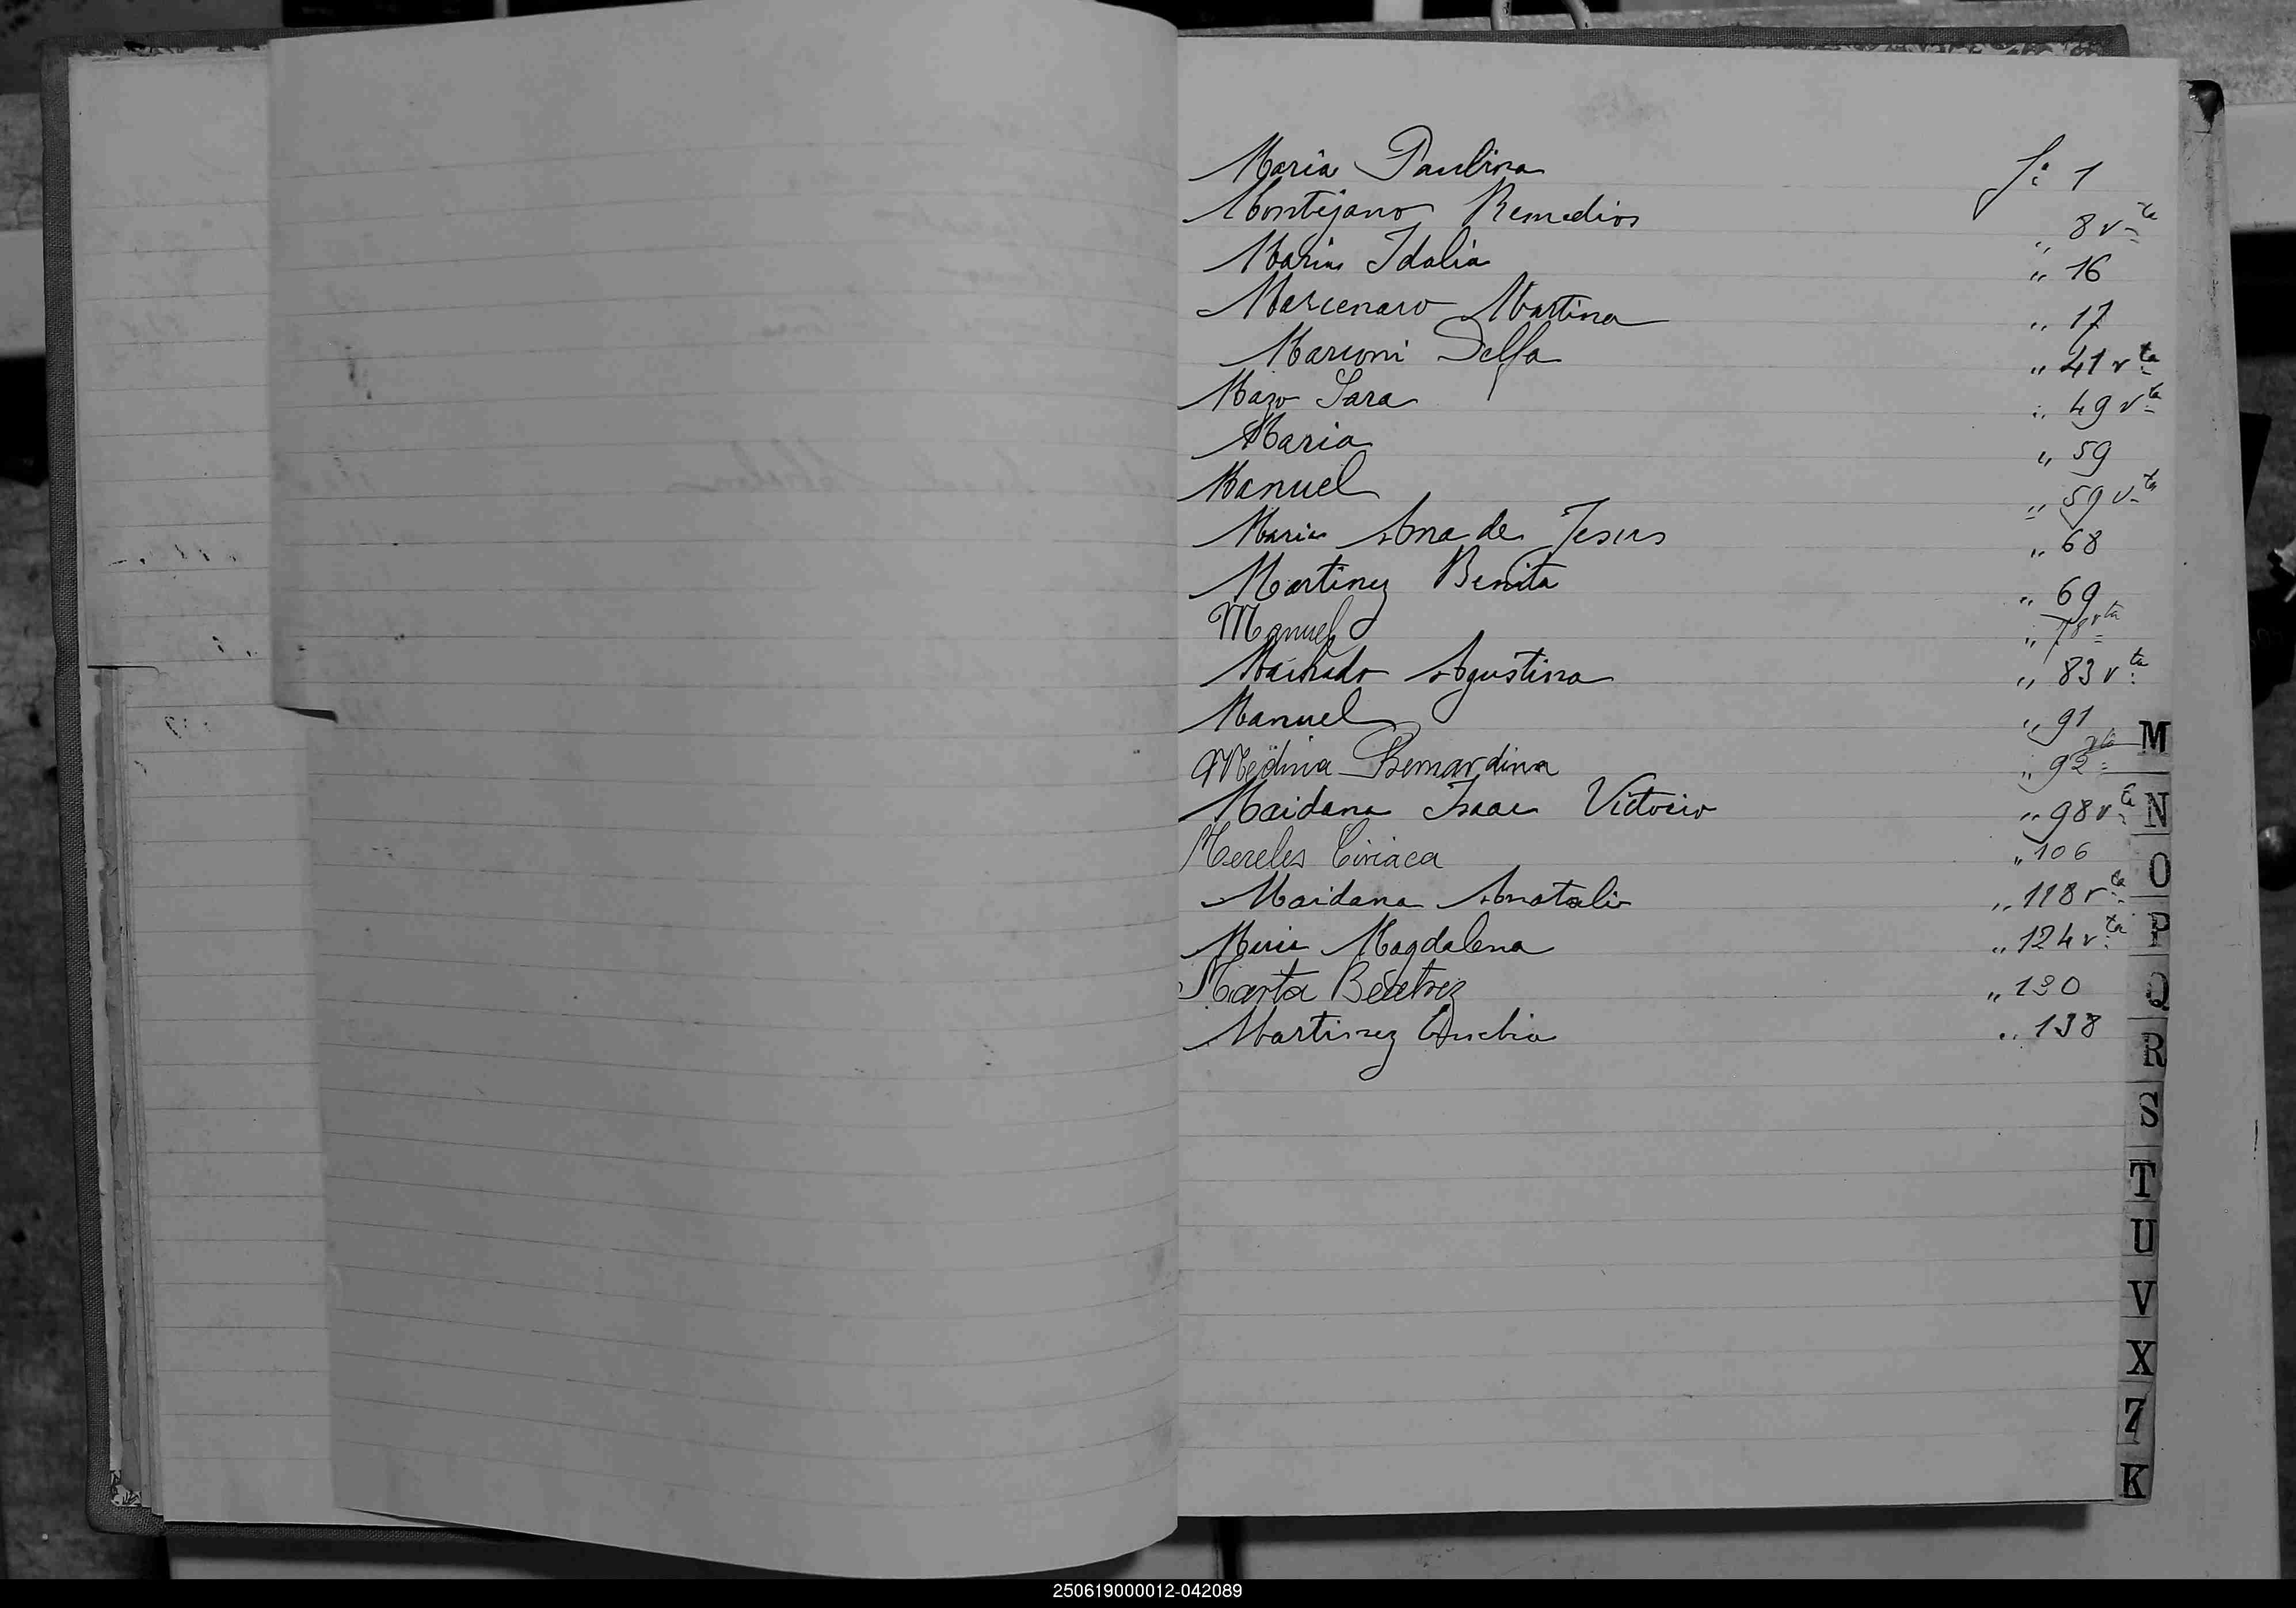 Maria Paulina fº 1
Montejano Remedios " 8 vta
Maria Idalia " 16
Marcenaro Martina " 17
Marconi Delfa " 41 vta
Mazo Sara " 49 vta
Maria " 59
Manuel " 59 vta
Maria Ana de Jesus " 68
Martinez Benita " 69
Manuel " 78 vta
Machado Agustina " 83 vta
Manuel " 91
Medina Bernardina " 92 vta
Maidana Isaac Victorio " 98 vta
Mereles Ciriaca " 106
Maidana Anatalio " 118 vta
Magdalena " 124 vta
Marta Beatriz " 130
Martinez Eusebia " 138
M
N
O
P
Q
R
S
T
U
V
X
Z
K
250619000012-042089